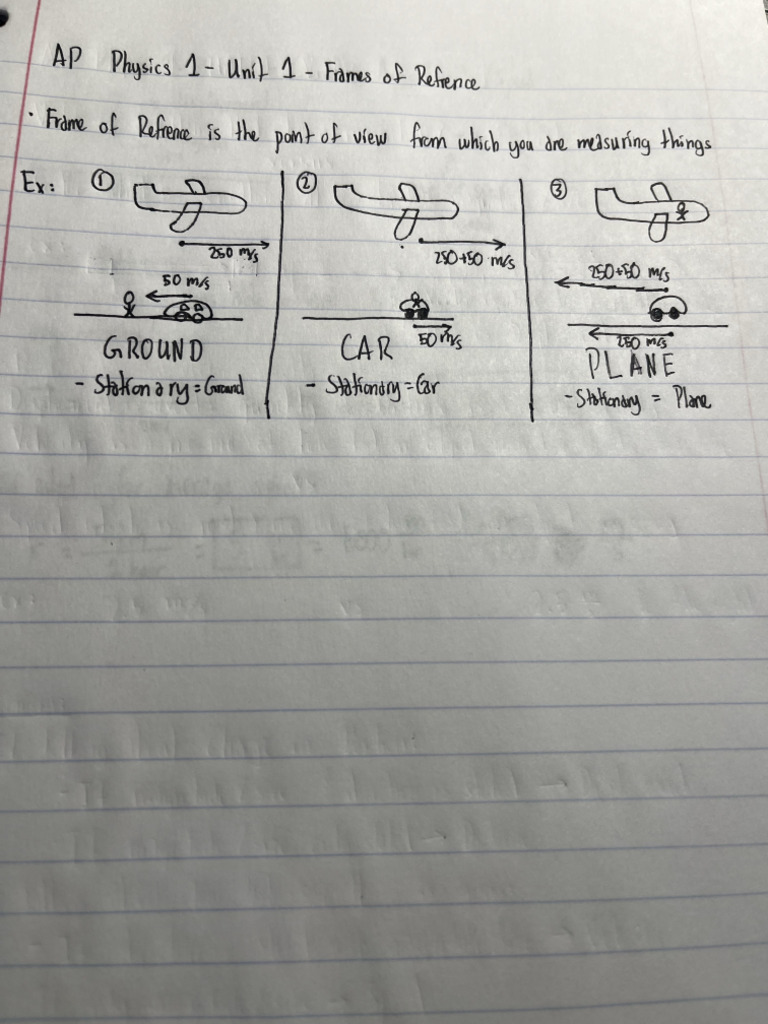 AP Physics 1 - Unit 1 - Frames of Refrence
· Frame of Refrence is the point of view from which you are measuring things
Ex: ① ② ③
250 m/s
250+50 m/s
250+50 m/s
50 m/s
50 m/s
250 m/s
GROUND
CAR
PLANE
- Stationary = Ground
- Stationary = Car
- Stationary = Plane